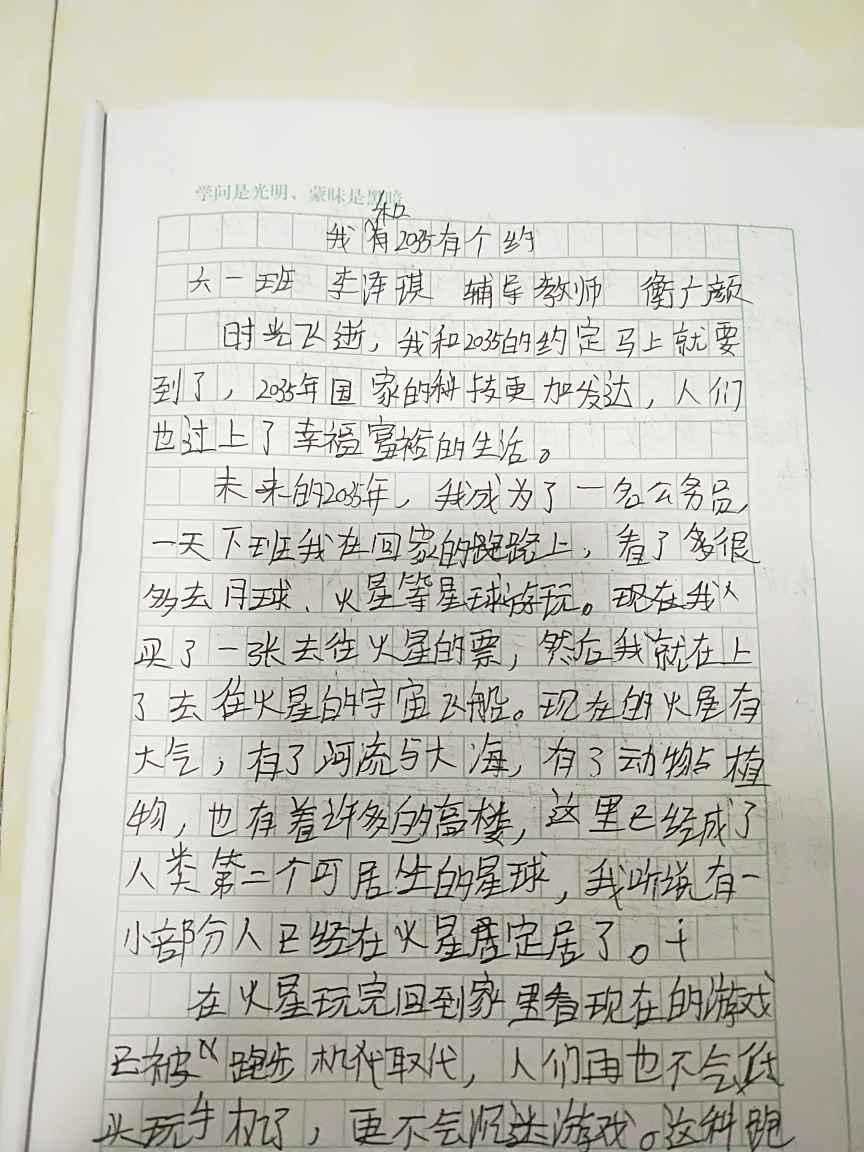 学问是光明、蒙昧是黑暗
我和2035有个约
六一班 李泽琪 辅导教师 衡广颜
时光飞逝，我和2035的约定马上就要
到了，2035年国家的科技更加发达，人们
也过上了幸福富裕的生活。
未来的2035年，我成为了一名公务员，
一天下班我在回家的跑路上，看了多很
多去月球、火星等星球游玩。现在我
买了一张去往火星的票，然后我就在上
了去往火星的宇宙飞船。现在的火星有
大气，有了河流与大海，有了动物与植
物，也有着许多的高楼，这里已经成了
人类第二个可居生的星球，我听说有一
小部分人已经在火星定居了。
在火星玩完回到家里看现在的游戏
已被跑步机代取代，人们再也不会低
头玩手机了，更不会沉迷游戏。这种跑